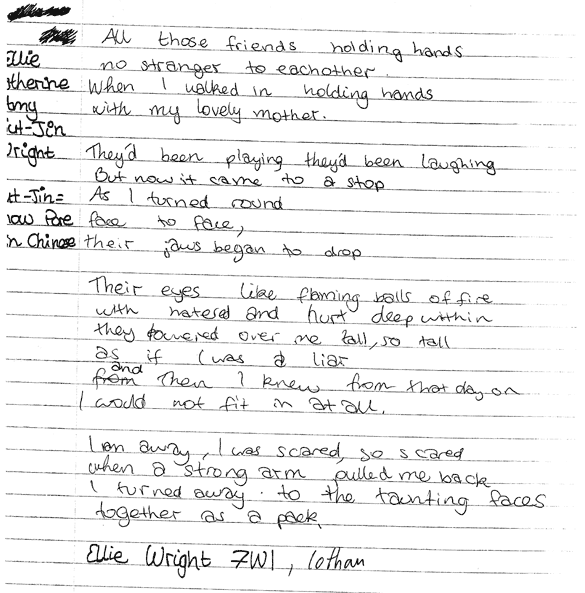 All those friends holding hands
Ellie
no stranger to eachother.
therine
When I walked in holding hands
Amy
with my lovely mother.
ut-Jin
Wright
They'd been playing they'd been laughing
But now it came to a stop
ut-Jin=
As I turned round
face to face,
in Chinese
their jaws began to drop
Their eyes like flaming balls of fire
with hatered and hurt deep within
they towered over me tall, so tall
as if I was a liar
and
from Then I knew from that day on
I would not fit in at all.
I ran away, I was scared, so scared
when a strong arm pulled me back
I turned away to the taunting faces
together as a pack.
Ellie Wright 7W1, lothan